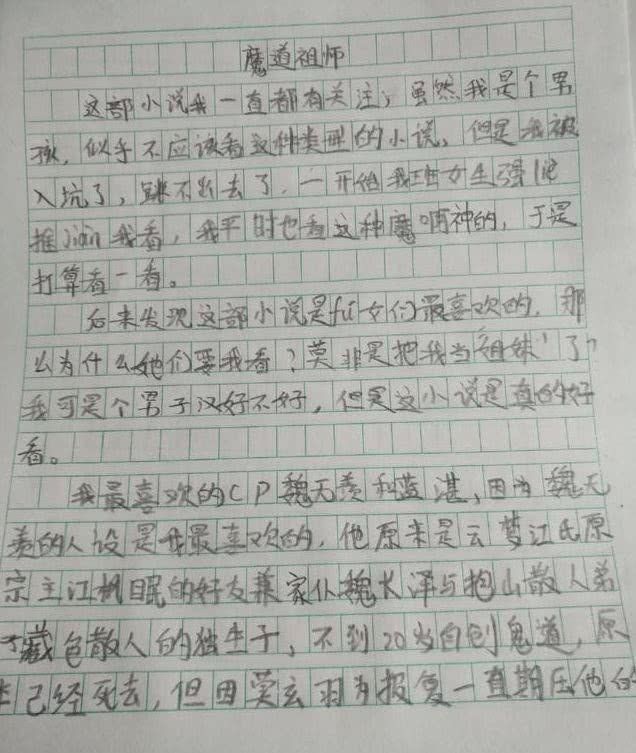 魔道祖师
这部小说我一直都有关注，虽然我是个男
孩，似乎不应该看这种类型的小说，但是我被
入坑了，跳不出去了，一开始我班女生强lie
推jiàn我看，我平时也看这种魔啊神的，于是
打算看一看。
后来发现这部小说是fǔ女们最喜欢的，那
么为什么她们要我看？莫非是把我当“姐妹”了？
我可是个男子汉好不好，但是这小说是真的好
看。
我最喜欢的CP魏无羡和蓝湛，因为魏无
羡的人设是我最喜欢的，他原来是云梦江氏原
宗主江枫眠的好友兼家仆魏长泽与抱山散人弟
子藏色散人的独生子，不到20岁自创鬼道，原
本已经死去，但因莫玄羽为报复一直期压他的